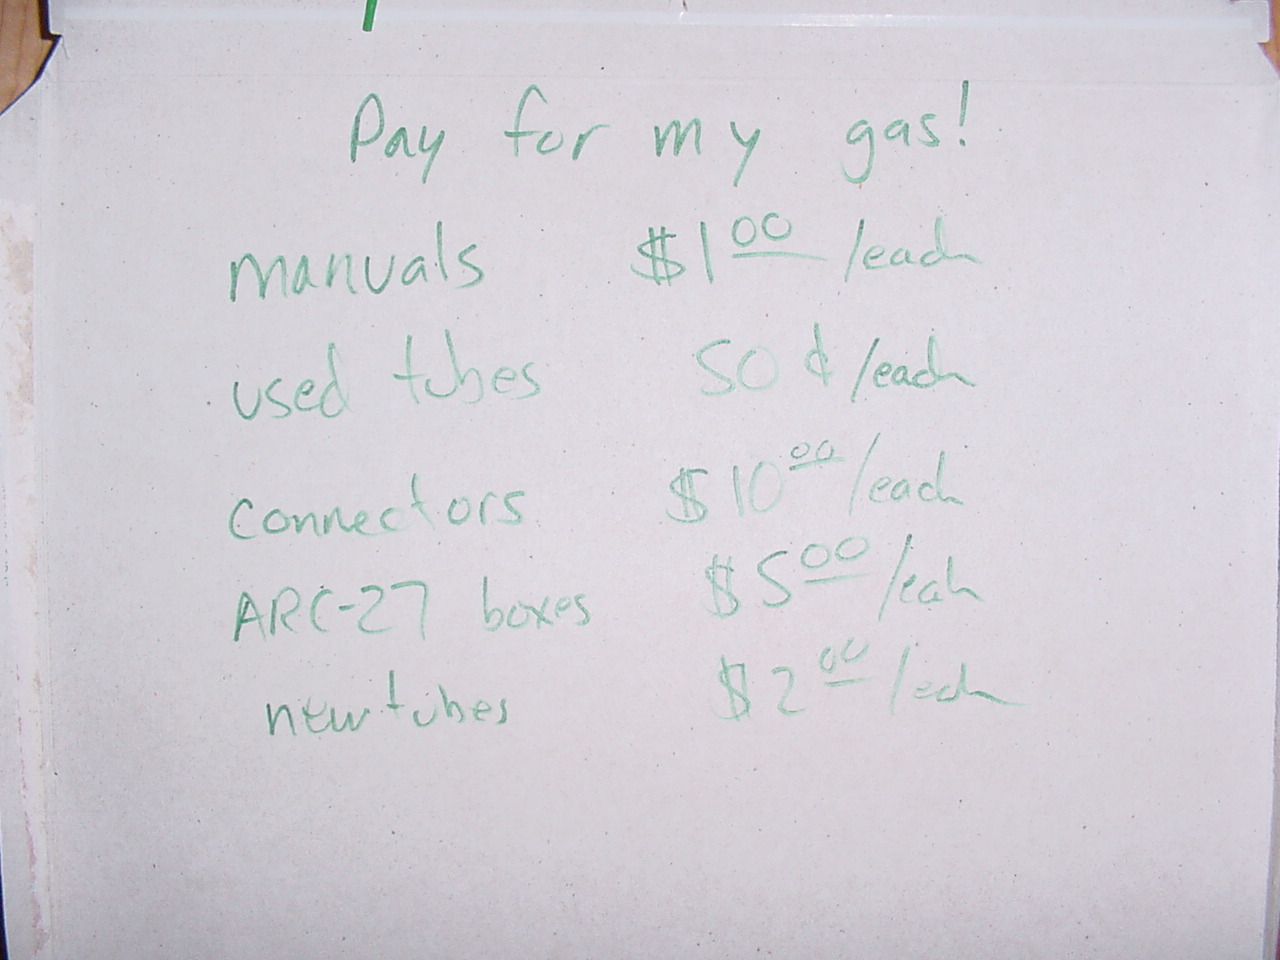 Pay for my gas!
manuals $1.00 /each
used tubes 50¢/each
connectors $10.00/each
ARC-27 boxes $5.00/eah
new tubes $2.00/each